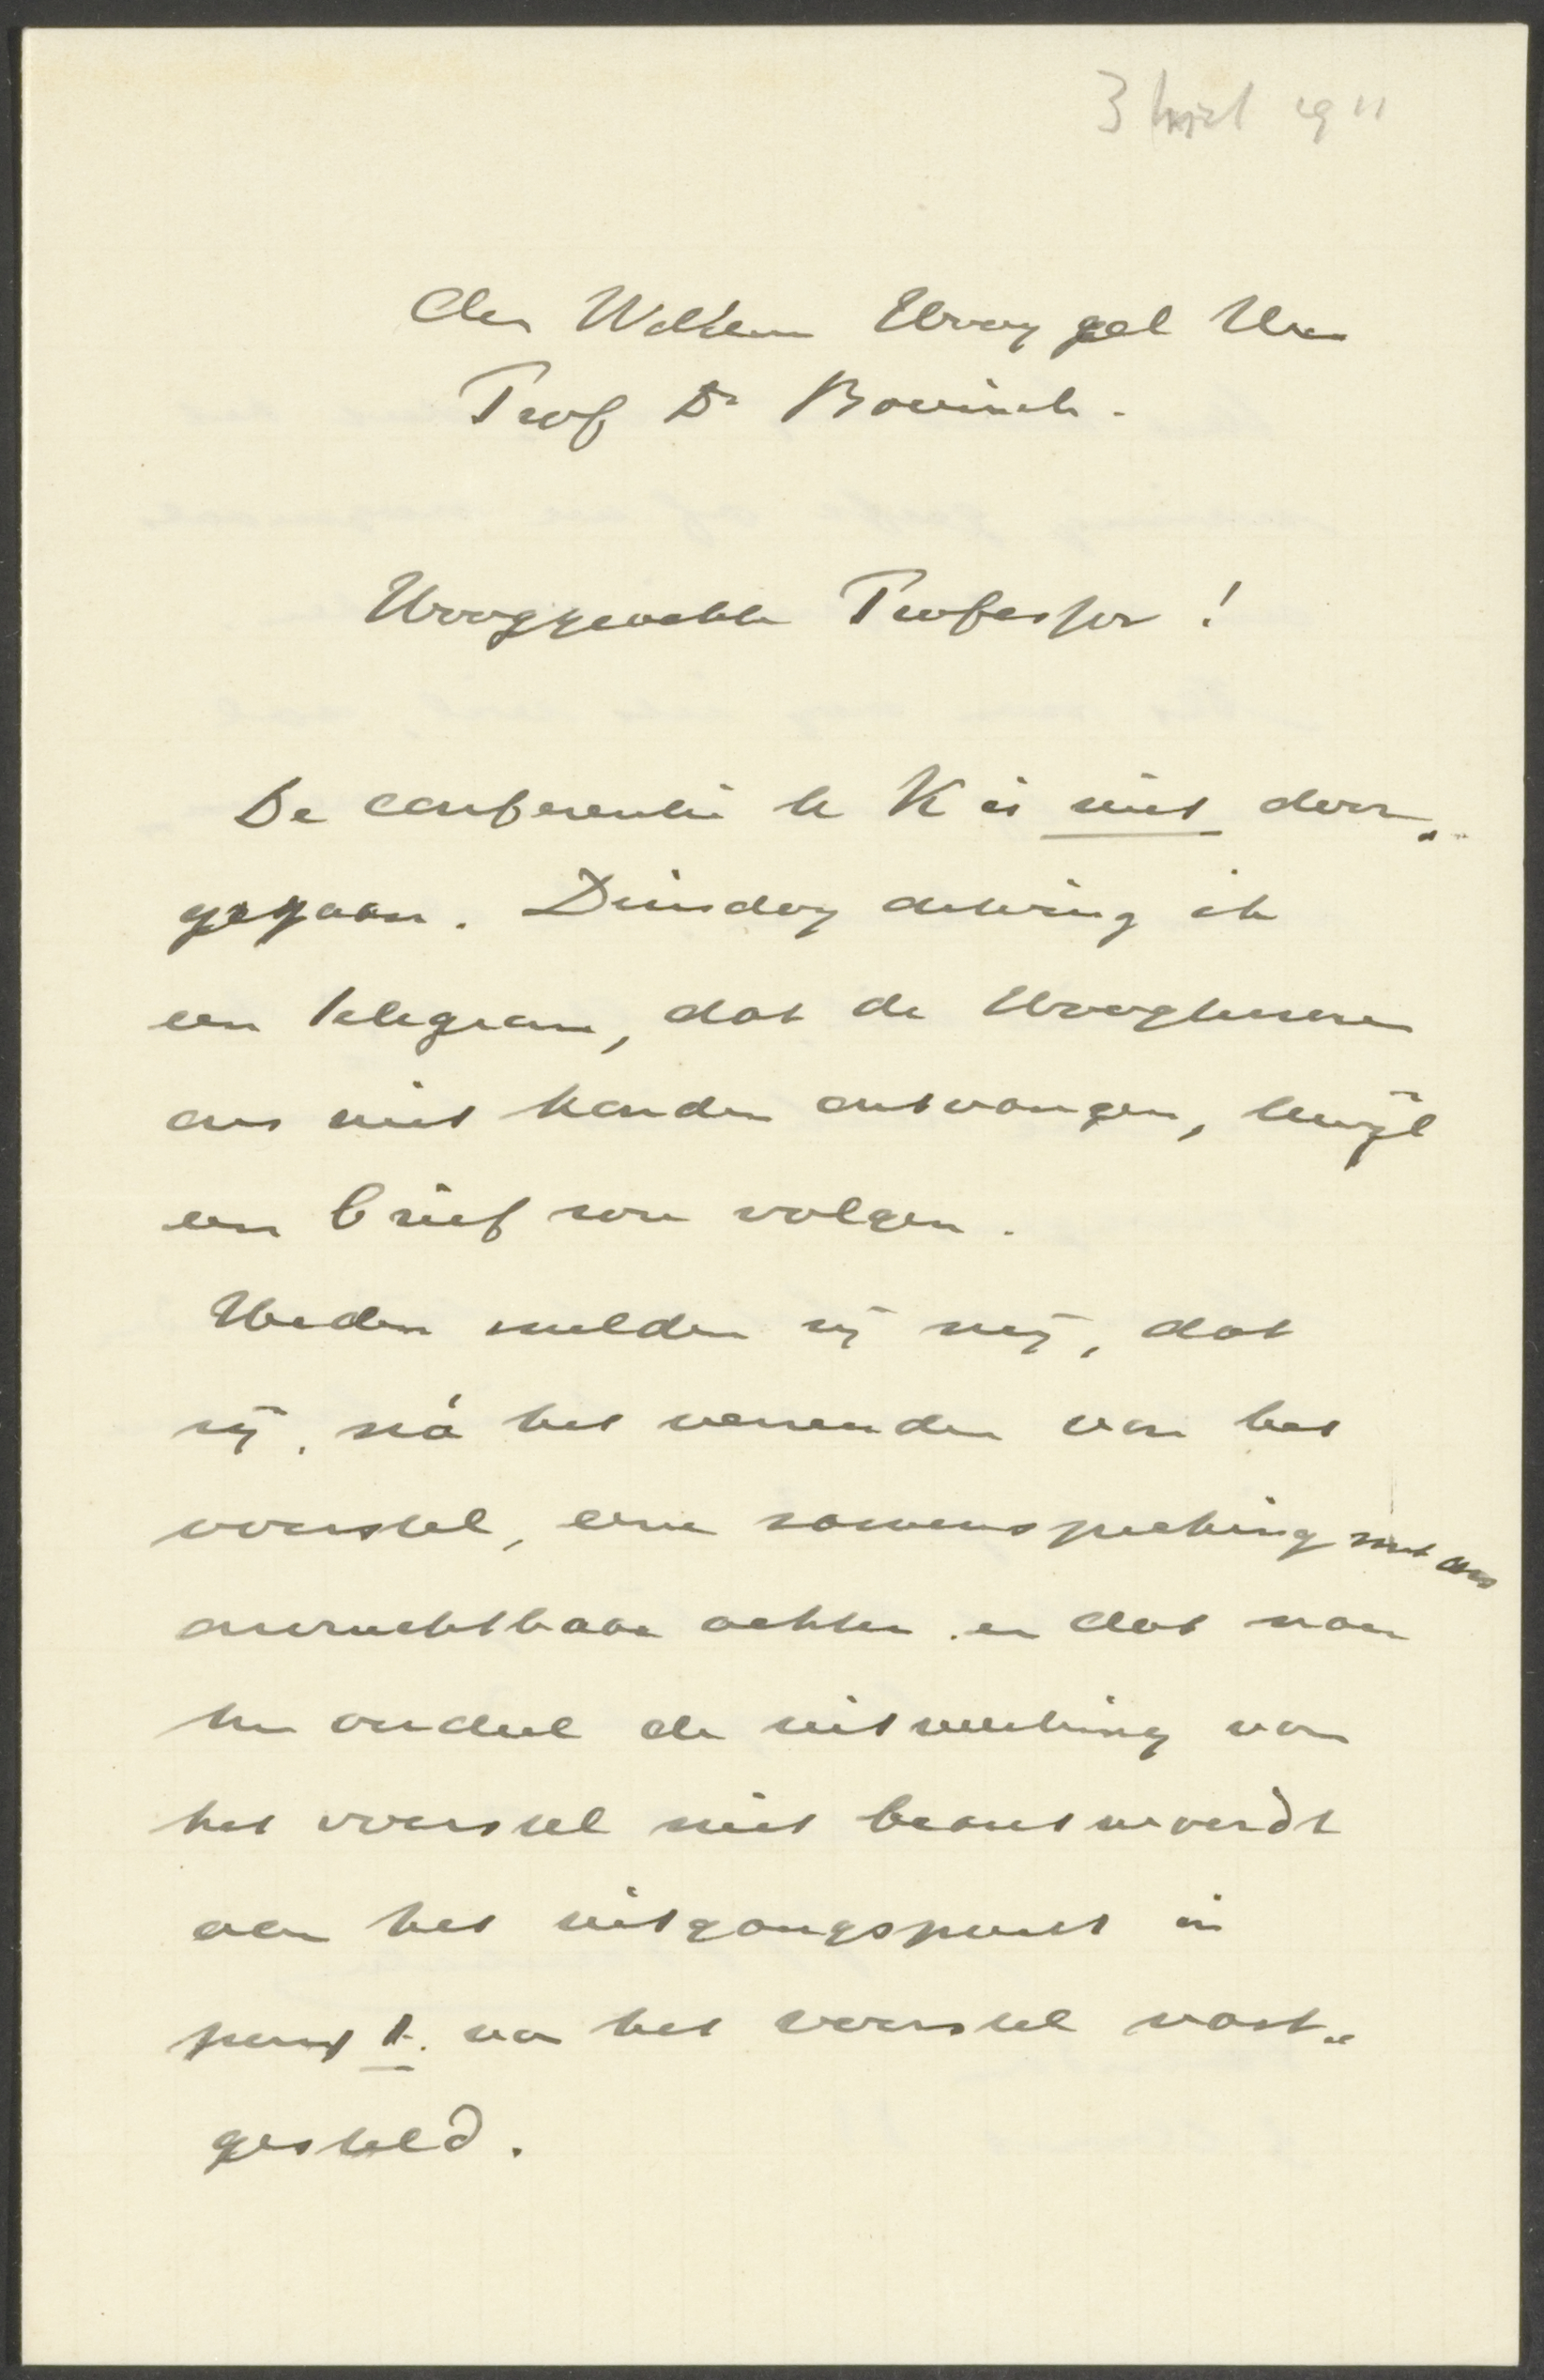 3 1911
Den WelEdelen Hoog gel Heer
Prof Dr Bavinck.
Hooggeachte Professor!
De conferentie te K is niet door„
gegaan. Dinsdag ontving ik
een telegram, dat de Hoogheeren
ons niet konden ontvangen, terwijl
een brief zou volgen.
Heden melden zij mij, dat
zij, ná het verzenden van het
voorstel, eene samenspreking met ons
onvruchtbaar achten en dat naar
hun oordeel de uitwerking van
het voorstel niet beantwoordt
aan het uitgangspunt in
punt 1. van het voorstel vast„
gesteld.